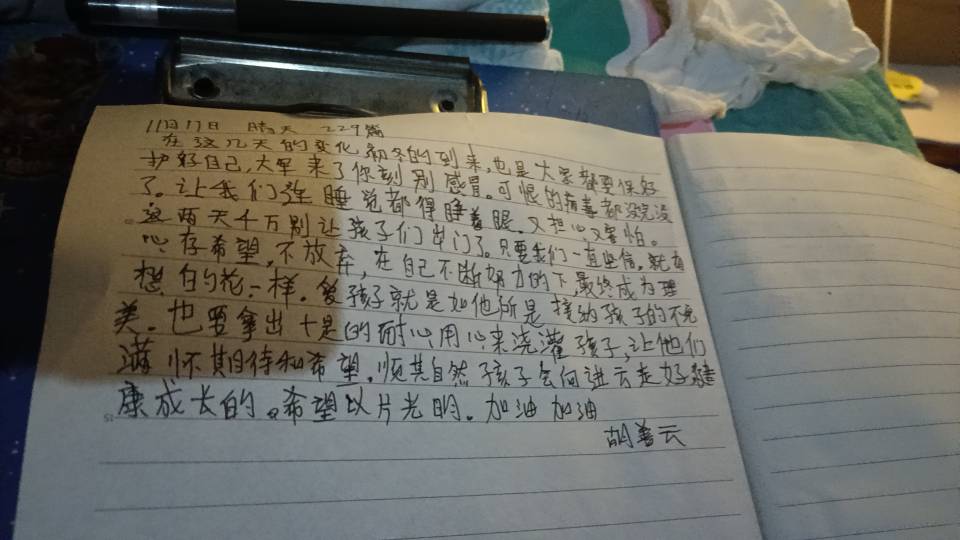 11月17日 晴天 229篇
在这几天的变化初冬的到来,也是大家都要保好
护好自己,大军来了你刻别感冒。可恨的病毒都没完没
了。让我们连睡觉都得睁着眼。又担心又害怕。
这两天千万别让孩子们出门了。只要我们一直坚信,就有
心存希望,不放弃,在自己不断努力的下,最终成为理
想白的花一样。爱孩子就是如他所是接纳孩子的不完
美。也要拿出十足的耐心用心来浇灌孩子,让他们
满怀期待和希望。顺其自然孩子会向进去走好健
康成长的。希望以片光明。加油加油
胡善云